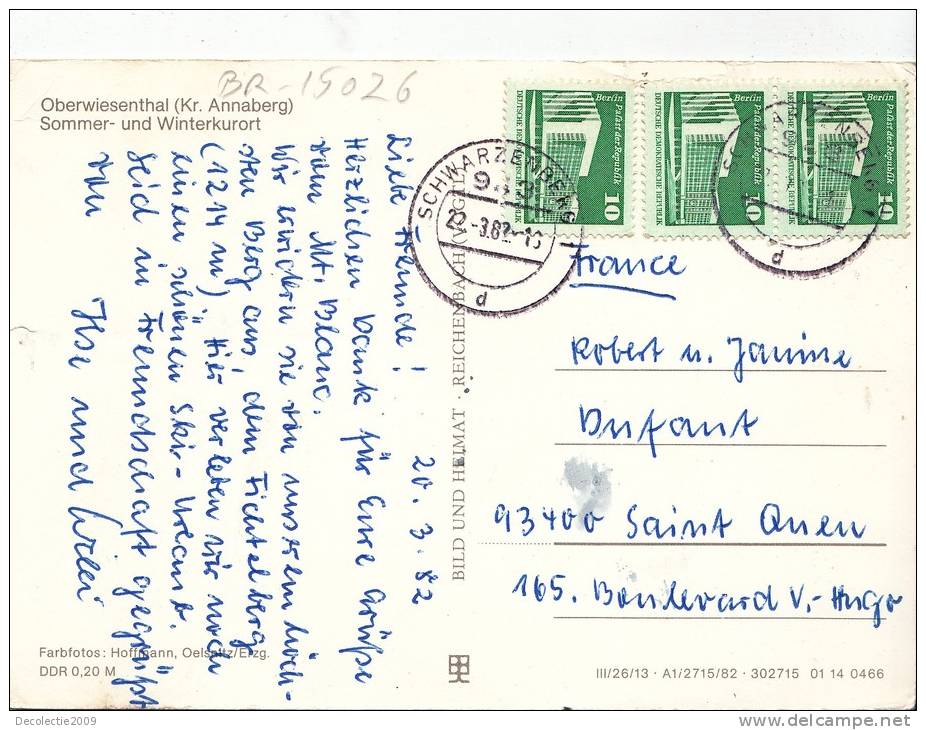 BR-15026
Oberwiesenthal (Kr. Annaberg)
Sommer- und Winterkurort
20. 3. 82
Liebe Freunde!
Herzlichen Dank für Eure Grüße
vom Mt. Blanc.
Wir erwidern sie von unserem höch-
sten Berg aus, dem Fichtelberg
(1214 m) Hier verleben wir noch
einen schönen Ski-Urlaub.
Seid in Freundschaft gegrüßt
von
Ilse und Willi
BILD UND HEIMAT · REICHENBACH (VOGTL)
Berlin
Palast der Republik
DEUTSCHE DEMOKRATISCHE REPUBLIK
10
Berlin
Palast der Republik
DEUTSCHE DEMOKRATISCHE REPUBLIK
10
Berlin
Palast der Republik
DEUTSCHE DEMOKRATISCHE REPUBLIK
10
SCHWARZENBERG 1
22.-3.82
d
d
France
Robert u. Janine
Dufant
93400 Saint Ouen
165. Boulevard V.-Hugo
Farbfotos: Hoffmann, Oelsnitz/Erzg.
DDR 0,20 M
III/26/13 · A1/2715/82 · 302715 01 14 0466
Decolectie2009
www.delcampe.net